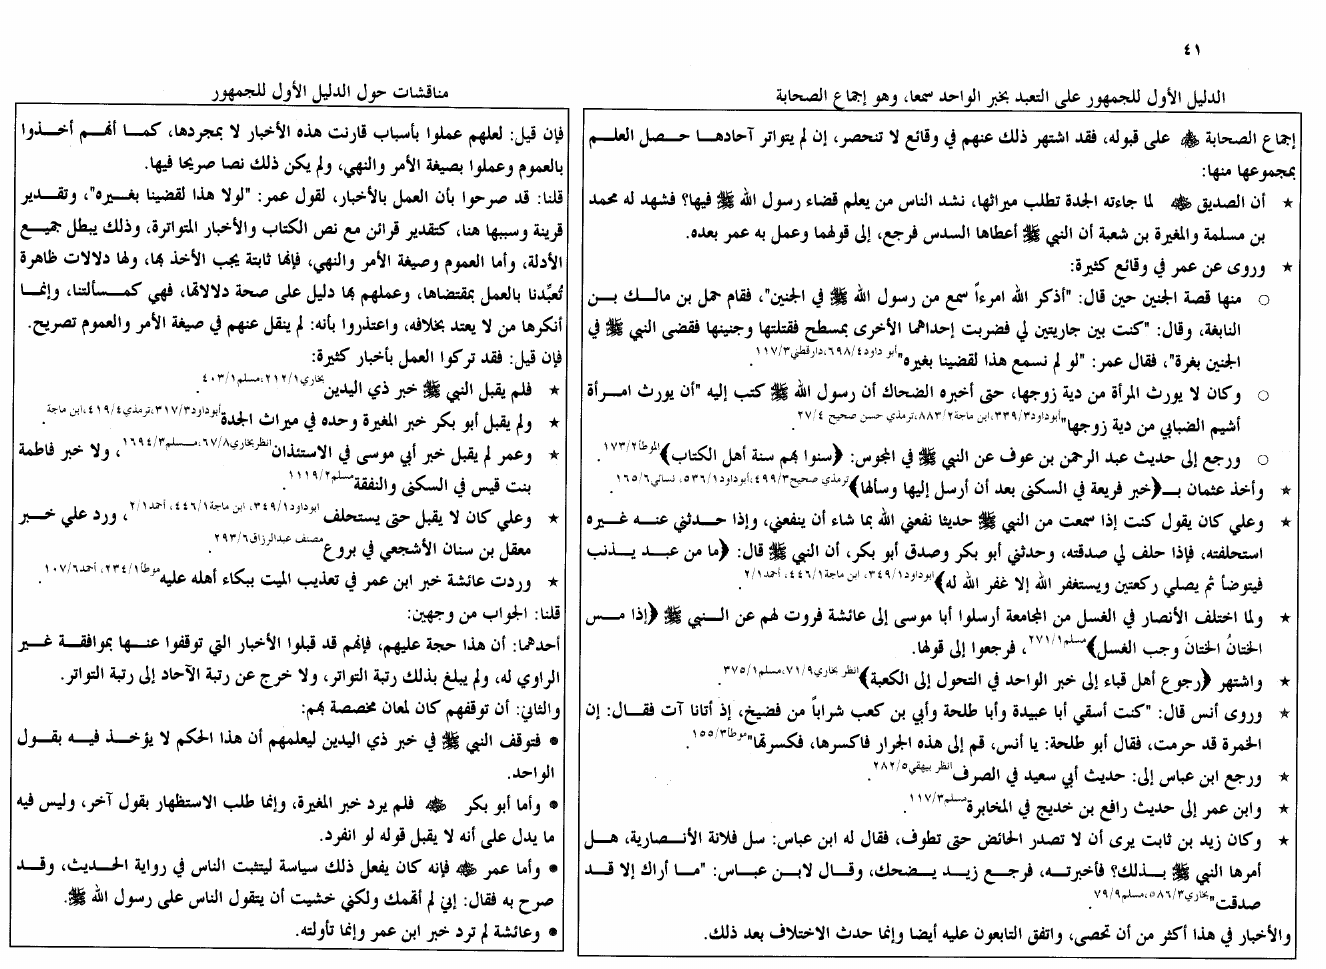 ٤١
الدليل الأول للجمهور على التعبد بخبر الواحد سمعا، وهو إجماع الصحابة
إجماع الصحابة ﷺ على قبوله، فقد اشتهر ذلك عنهم في وقائع لا تنحصر، إن لم يتواتر آحادها حصل العلم
بمجموعها منها:
★ أن الصديق ﷺ لما جاءته الجدة تطلب ميراثها، نشد الناس من يعلم قضاء رسول الله ﷺ فيها؟ فشهد له محمد
بن مسلمة والمغيرة بن شعبة أن النبي ﷺ أعطاها السدس فرجع، إلى قولهما وعمل به عمر بعده.
★ وروى عن عمر في وقائع كثيرة:
○ منها قصة الجنين حين قال: "أذكر الله امرءاً سمع من رسول الله ﷺ في الجنين"، فقام حمل بن مالك بن
النابغة، وقال: "كنت بين جاريتين لي فضربت إحداهما الأخرى بمسطح فقتلتها وجنينها فقضى النبي ﷺ في
الجنين بغرة"، فقال عمر: "لو لم نسمع هذا لقضينا بغيره" أبو داود٦٩٨/٤، دارقطني١١٧/٣.
○ وكان لا يورث المرأة من دية زوجها، حتى أخبره الضحاك أن رسول الله ﷺ كتب إليه "أن يورث امرأة
أشيم الضبابي من دية زوجها" أبوداود٣٣٩/٣، ابن ماجة٨٨٣/٢، ترمذي حسن صحيح ٢٧/٤.
○ ورجع إلى حديث عبد الرحمن بن عوف عن النبي ﷺ في المجوس: ﴿سنوا بهم سنة أهل الكتاب﴾ الموطأ١٧٣/٢.
★ وأخذ عثمان بـ﴿خبر فريعة في السكنى بعد أن أرسل إليها وسألها﴾ ترمذي صحيح٤٩٩/٣، أبوداود٥٣٦/١، نسائي١٦٥/٦.
★ وعلي كان يقول كنت إذا سمعت من النبي ﷺ حديثا نفعني الله بما شاء أن ينفعني، وإذا حدثني عنه غيره
استحلفته، فإذا حلف لي صدقته، وحدثني أبو بكر وصدق أبو بكر، أن النبي ﷺ قال: ﴿ما من عبد يذنب
فيتوضأ ثم يصلي ركعتين ويستغفر الله إلا غفر الله له﴾ أبوداود٣٤٩/١، ابن ماجة٤٤٦/١، أحمد٢/١.
★ ولما اختلف الأنصار في الغسل من المجامعة أرسلوا أبا موسى إلى عائشة فروت لهم عن النبي ﷺ ﴿إذا مس
الختانُ الختانَ وجب الغسل﴾ مسلم٢٧١/١، فرجعوا إلى قولها.
★ واشتهر ﴿رجوع أهل قباء إلى خبر الواحد في التحول إلى الكعبة﴾ انظر بخاري٧١/٩، مسلم٣٧٥/١.
★ وروى أنس قال: "كنت أسقي أبا عبيدة وأبا طلحة وأبي بن كعب شراباً من فضيخ، إذ أتانا آت فقال: إن
الخمرة قد حرمت، فقال أبو طلحة: يا أنس، قم إلى هذه الجرار فاكسرها، فكسرتها" موطأ١٥٥/٣.
★ ورجع ابن عباس إلى: حديث أبي سعيد في الصرف انظر بيهقي٢٨٢/٥.
★ وابن عمر إلى حديث رافع بن خديج في المخابرة مسلم١١٧/٣.
★ وكان زيد بن ثابت يرى أن لا تصدر الحائض حتى تطوف، فقال له ابن عباس: سل فلانة الأنصارية، هل
أمرها النبي ﷺ بذلك؟ فأخبرته، فرجع زيد يضحك، وقال لابن عباس: "ما أراك إلا قد
صدقت" بخاري٥٨٦/٣، مسلم٧٩/٩.
والأخبار في هذا أكثر من أن تحصى، واتفق التابعون عليه أيضا وإنما حدث الاختلاف بعد ذلك.
مناقشات حول الدليل الأول للجمهور
فإن قيل: لعلهم عملوا بأسباب قارنت هذه الأخبار لا بمجردها، كما أنهم أخذوا
بالعموم وعملوا بصيغة الأمر والنهي، ولم يكن ذلك نصا صريحا فيها.
قلنا: قد صرحوا بأن العمل بالأخبار، لقول عمر: "لولا هذا لقضينا بغيره"، وتقدير
قرينة وسببها هنا، كتقدير قرائن مع نص الكتاب والأخبار المتواترة، وذلك يبطل جميع
الأدلة، وأما العموم وصيغة الأمر والنهي، فإنها ثابتة يجب الأخذ بها، ولها دلالات ظاهرة
تُعبِّدنا بالعمل بمقتضاها، وعملهم بها دليل على صحة دلالاتها، فهي كمسألتنا، وإنما
أنكرها من لا يعتد بخلافه، واعتذروا بأنه: لم ينقل عنهم في صيغة الأمر والعموم تصريح.
فإن قيل: فقد تركوا العمل بأخبار كثيرة:
★ فلم يقبل النبي ﷺ خبر ذي اليدين بخاري٢١٢/١، مسلم٤٠٣/١.
★ ولم يقبل أبو بكر خبر المغيرة وحده في ميراث الجدة أبوداود٣١٧/٣، ترمذي٤١٩/٤، ابن ماجة
★ وعمر لم يقبل خبر أبي موسى في الاستئذان انظر بخاري٦٧/٨، مسلم١٦٩٤/٣، ولا خبر فاطمة
بنت قيس في السكنى والنفقة مسلم١١١٩/٢.
★ وعلي كان لا يقبل حتى يستحلف ابوداود٣٤٩/١، ابن ماجة٤٤٦/١، أحمد٢/١، ورد علي خبر
معقل بن سنان الأشجعي في بروع مصنف عبدالرزاق٢٩٣/٦.
★ وردت عائشة خبر ابن عمر في تعذيب الميت ببكاء أهله عليه موطأ٢٣٤/١، أحمد١٠٧/٦.
قلنا: الجواب من وجهين:
أحدهما: أن هذا حجة عليهم، فإنهم قد قبلوا الأخبار التي توقفوا عنها بموافقة غير
الراوي له، ولم يبلغ بذلك رتبة التواتر، ولا خرج عن رتبة الآحاد إلى رتبة التواتر.
والثاني: أن توقفهم كان لمعان مختصة بهم:
• فتوقف النبي ﷺ في خبر ذي اليدين ليعلمهم أن هذا الحكم لا يؤخذ فيه بقول
الواحد.
• وأما أبو بكر ﷺ فلم يرد خبر المغيرة، وإنما طلب الاستظهار بقول آخر، وليس فيه
ما يدل على أنه لا يقبل قوله لو انفرد.
• وأما عمر ﷺ فإنه كان يفعل ذلك سياسة ليتثبت الناس في رواية الحديث، وقد
صرح به فقال: إني لم أتهمك ولكني خشيت أن يتقول الناس على رسول الله ﷺ.
• وعائشة لم ترد خبر ابن عمر وإنما تأولته.